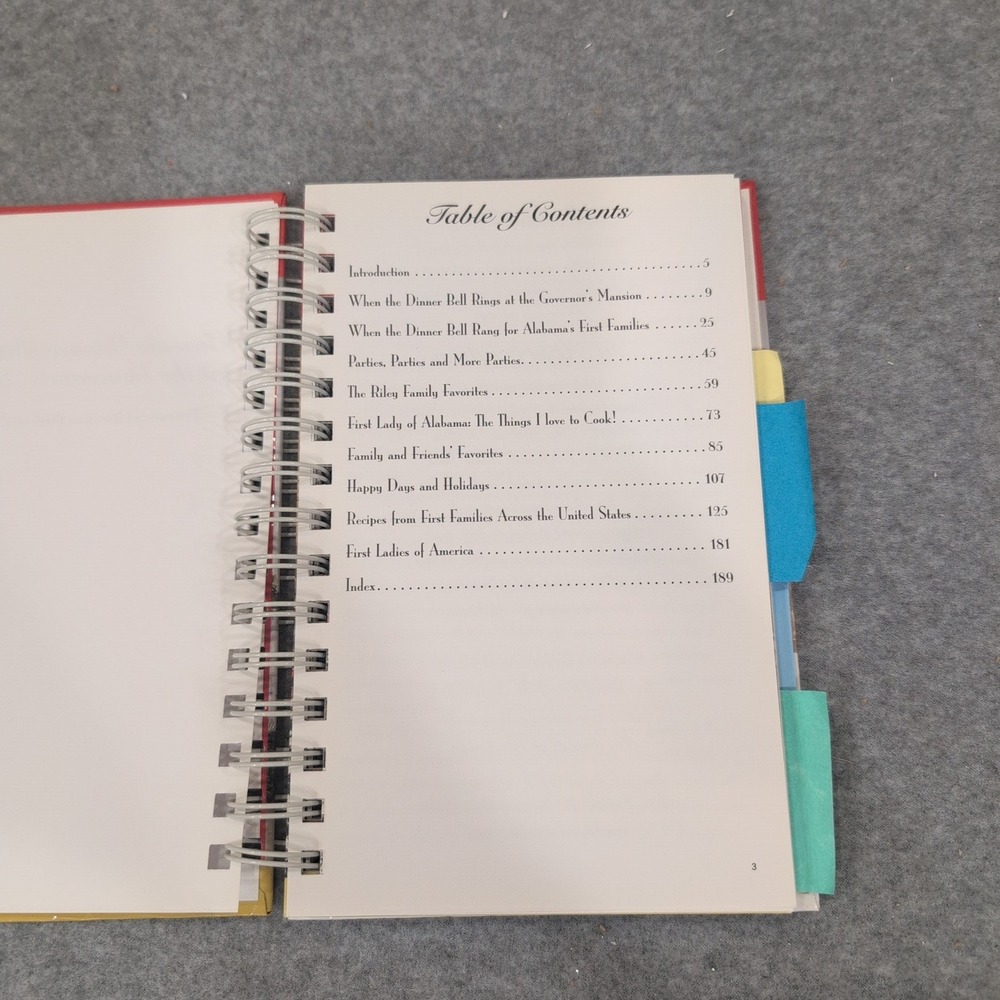 Table of Contents
Introduction . . . . . . . . . . . . . . . . . . . . . . . . . . . . . . . . . . . . . . . 5
When the Dinner Bell Rings at the Governor's Mansion . . . . . . . . 9
When the Dinner Bell Rang for Alabama's First Families . . . . . . 25
Parties, Parties and More Parties. . . . . . . . . . . . . . . . . . . . . . . . 45
The Riley Family Favorites . . . . . . . . . . . . . . . . . . . . . . . . . . . . . 59
First Lady of Alabama: The Things I love to Cook! . . . . . . . . . . . 73
Family and Friends' Favorites . . . . . . . . . . . . . . . . . . . . . . . . . . . 85
Happy Days and Holidays . . . . . . . . . . . . . . . . . . . . . . . . . . . . 107
Recipes from First Families Across the United States . . . . . . . . . 125
First Ladies of America . . . . . . . . . . . . . . . . . . . . . . . . . . . . . . 181
Index. . . . . . . . . . . . . . . . . . . . . . . . . . . . . . . . . . . . . . . . . . . 189
3